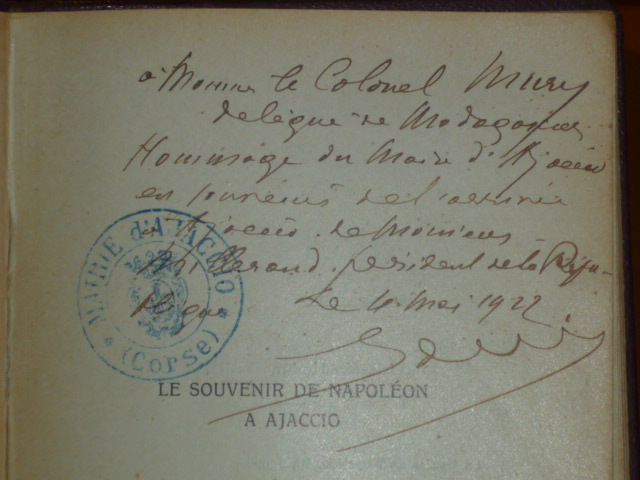 à Monsieur le Colonel Mury
délégué de Madagascar
Hommage du Maire d'Ajaccio
en souvenir de l'arrivée
à Ajaccio de Monsieur
Millerand président de la Répu-
blique Le 4 Mai 1922
MAIRIE d'AJACCIO
(CORSE)
LE SOUVENIR DE NAPOLÉON
A AJACCIO